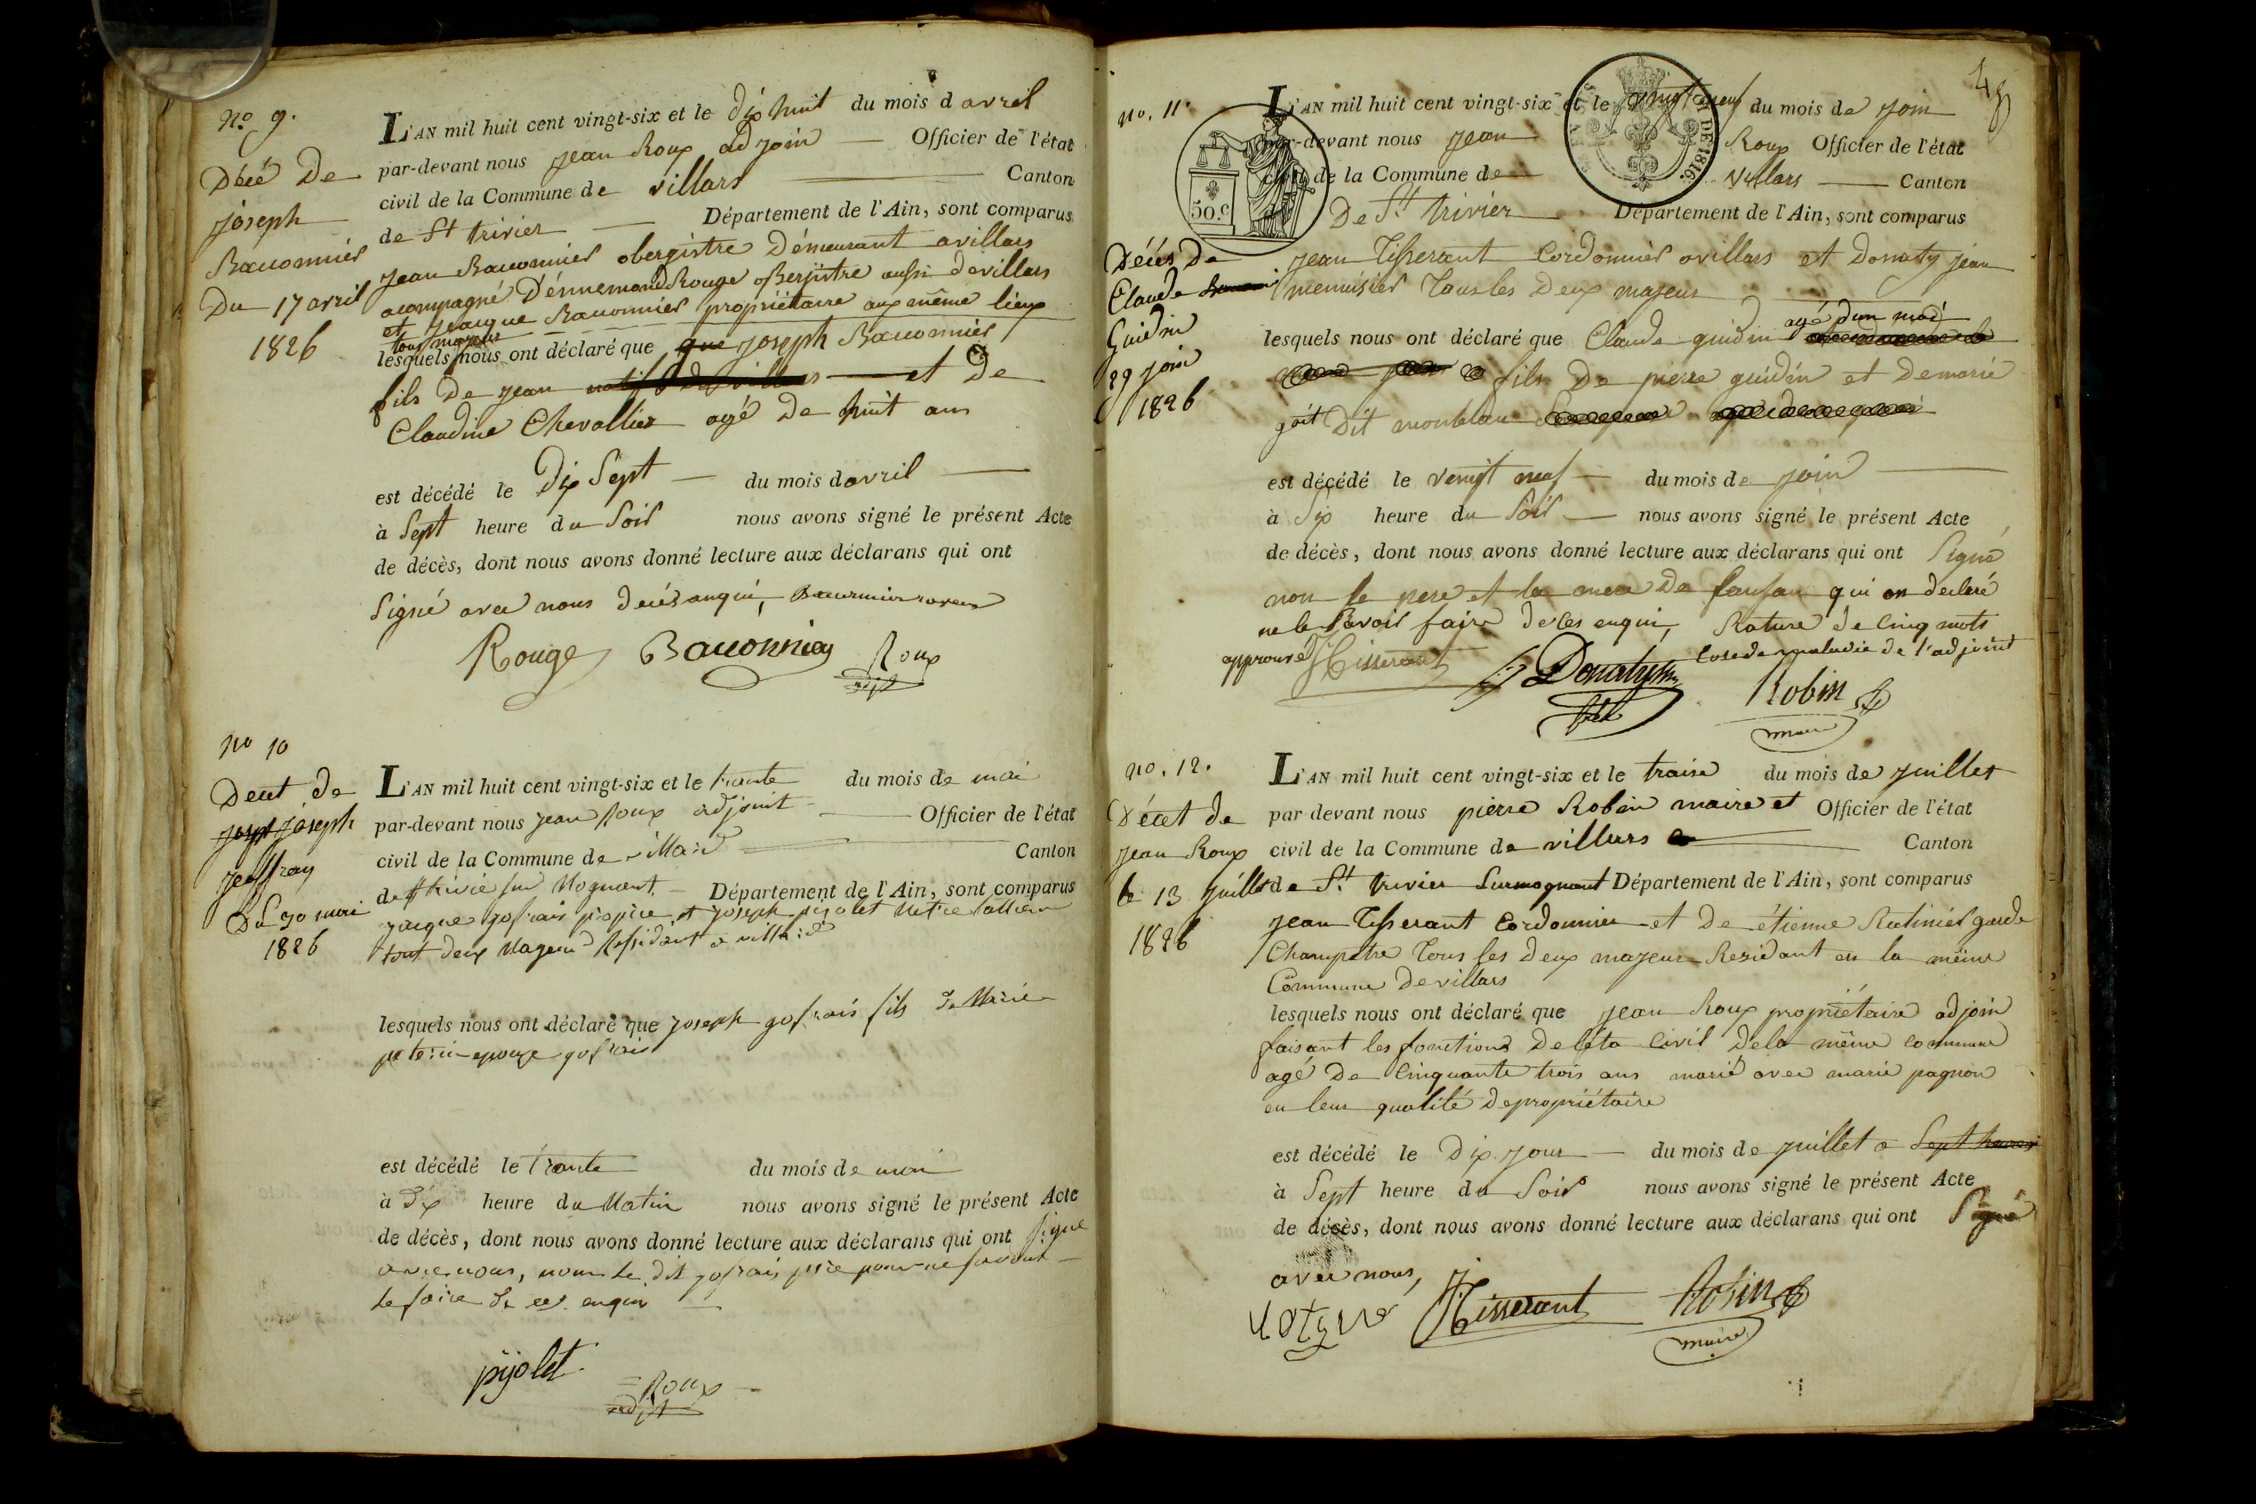 No 9.
Décé De
joseph
Baconnier
Du 17 avril
1826
L'AN mil huit cent vingt-six et le dix huit du mois d avril
par-devant nous jean Roux adjoin Officier de l'état
civil de la Commune de villars Canton
de St trivier Département de l'Ain, sont comparus
jean Baconnier obergistre Démeurant a villars
acompagné Rouge aussi de villars
et jacque Baconnier propriétaire aux même lieux
tous majeurs
lesquels nous ont déclaré que que joseph Baconnier
fils De jean et De
Claudine Chevallier agé De huit ans
est décédé le Dix Sept du mois d avril
à Sept heure du Soir nous avons signé le présent Acte
de décès, dont nous avons donné lecture aux déclarans qui ont
Signé avec nous De
Rouge Baconnier Roux
adjt
No 10
Decet de
joseph
jeoffray
Du 30 mai
1826
L'AN mil huit cent vingt-six et le trante du mois de mai
par-devant nous jean Roux adjoint Officier de l'état
civil de la Commune de villard Canton
de Département de l'Ain, sont comparus
jacque et joseph pijolet
tout deux Mageur Ressidant a villard
lesquels nous ont déclaré que joseph gofrais fils de Marie
epouze gofrais
est décédé le trante du mois de mai
à Dix heure du Matin nous avons signé le présent Acte
de décès, dont nous avons donné lecture aux déclarans qui ont signe
avec nous, le dit gofrais pour ne savoir
le faire de
pijolet
Roux
adjt
48
No. 11.
50.c
LOI DE 1816.
Décés De
Claude
Guidin
29 join
1826
L'AN mil huit cent vingt-six et le vingt neuf du mois de join
par-devant nous jean Roux Officier de l'état
civil de la Commune de villars Canton
De St trivier Département de l'Ain, sont comparus
jean Tisserant Cordonnier a villars et Donaty jean
menuisier Tous les Deux majeur
agé d'un moi
lesquels nous ont déclaré que Claude guidin
fils De pierre guidin et De marie
goit Dit monblanc
est décédé le vengt neuf du mois de join
à Six heure du Soir nous avons signé le présent Acte
de décès, dont nous avons donné lecture aux déclarans qui ont Signé
non le pere et la mere De lanfan qui on decleré
ne le Savoir faire Rature de Cinq mots
approuvé de maladie de l'adjoint
JTisserant Donaty Robin
maire
No. 12.
Décet de
jean Roux
le 13 juillet
1826
L'AN mil huit cent vingt-six et le traise du mois de juillet
par devant nous pierre Robin maire et Officier de l'état
civil de la Commune de villars Canton
de St trivier Surmognant Département de l'Ain, sont comparus
jean Tisserant Cordonnier et De étienne garde
Champetre Tous les Deux majeur Rezidant en la même
Commune De villars
lesquels nous ont déclaré que jean Roux propriétaire adjoin
faisant les fonctions De léta Civil De la même commune
agé De Cinquante trois ans marié avec marie pagnon
en leur qualité de propriétaire
est décédé le Dix jour du mois de juillet a Sept heures
à Sept heure du Soir nous avons signé le présent Acte
de décès, dont nous avons donné lecture aux déclarans qui ont Signé
avec nous,
JTisserant Robin
maire